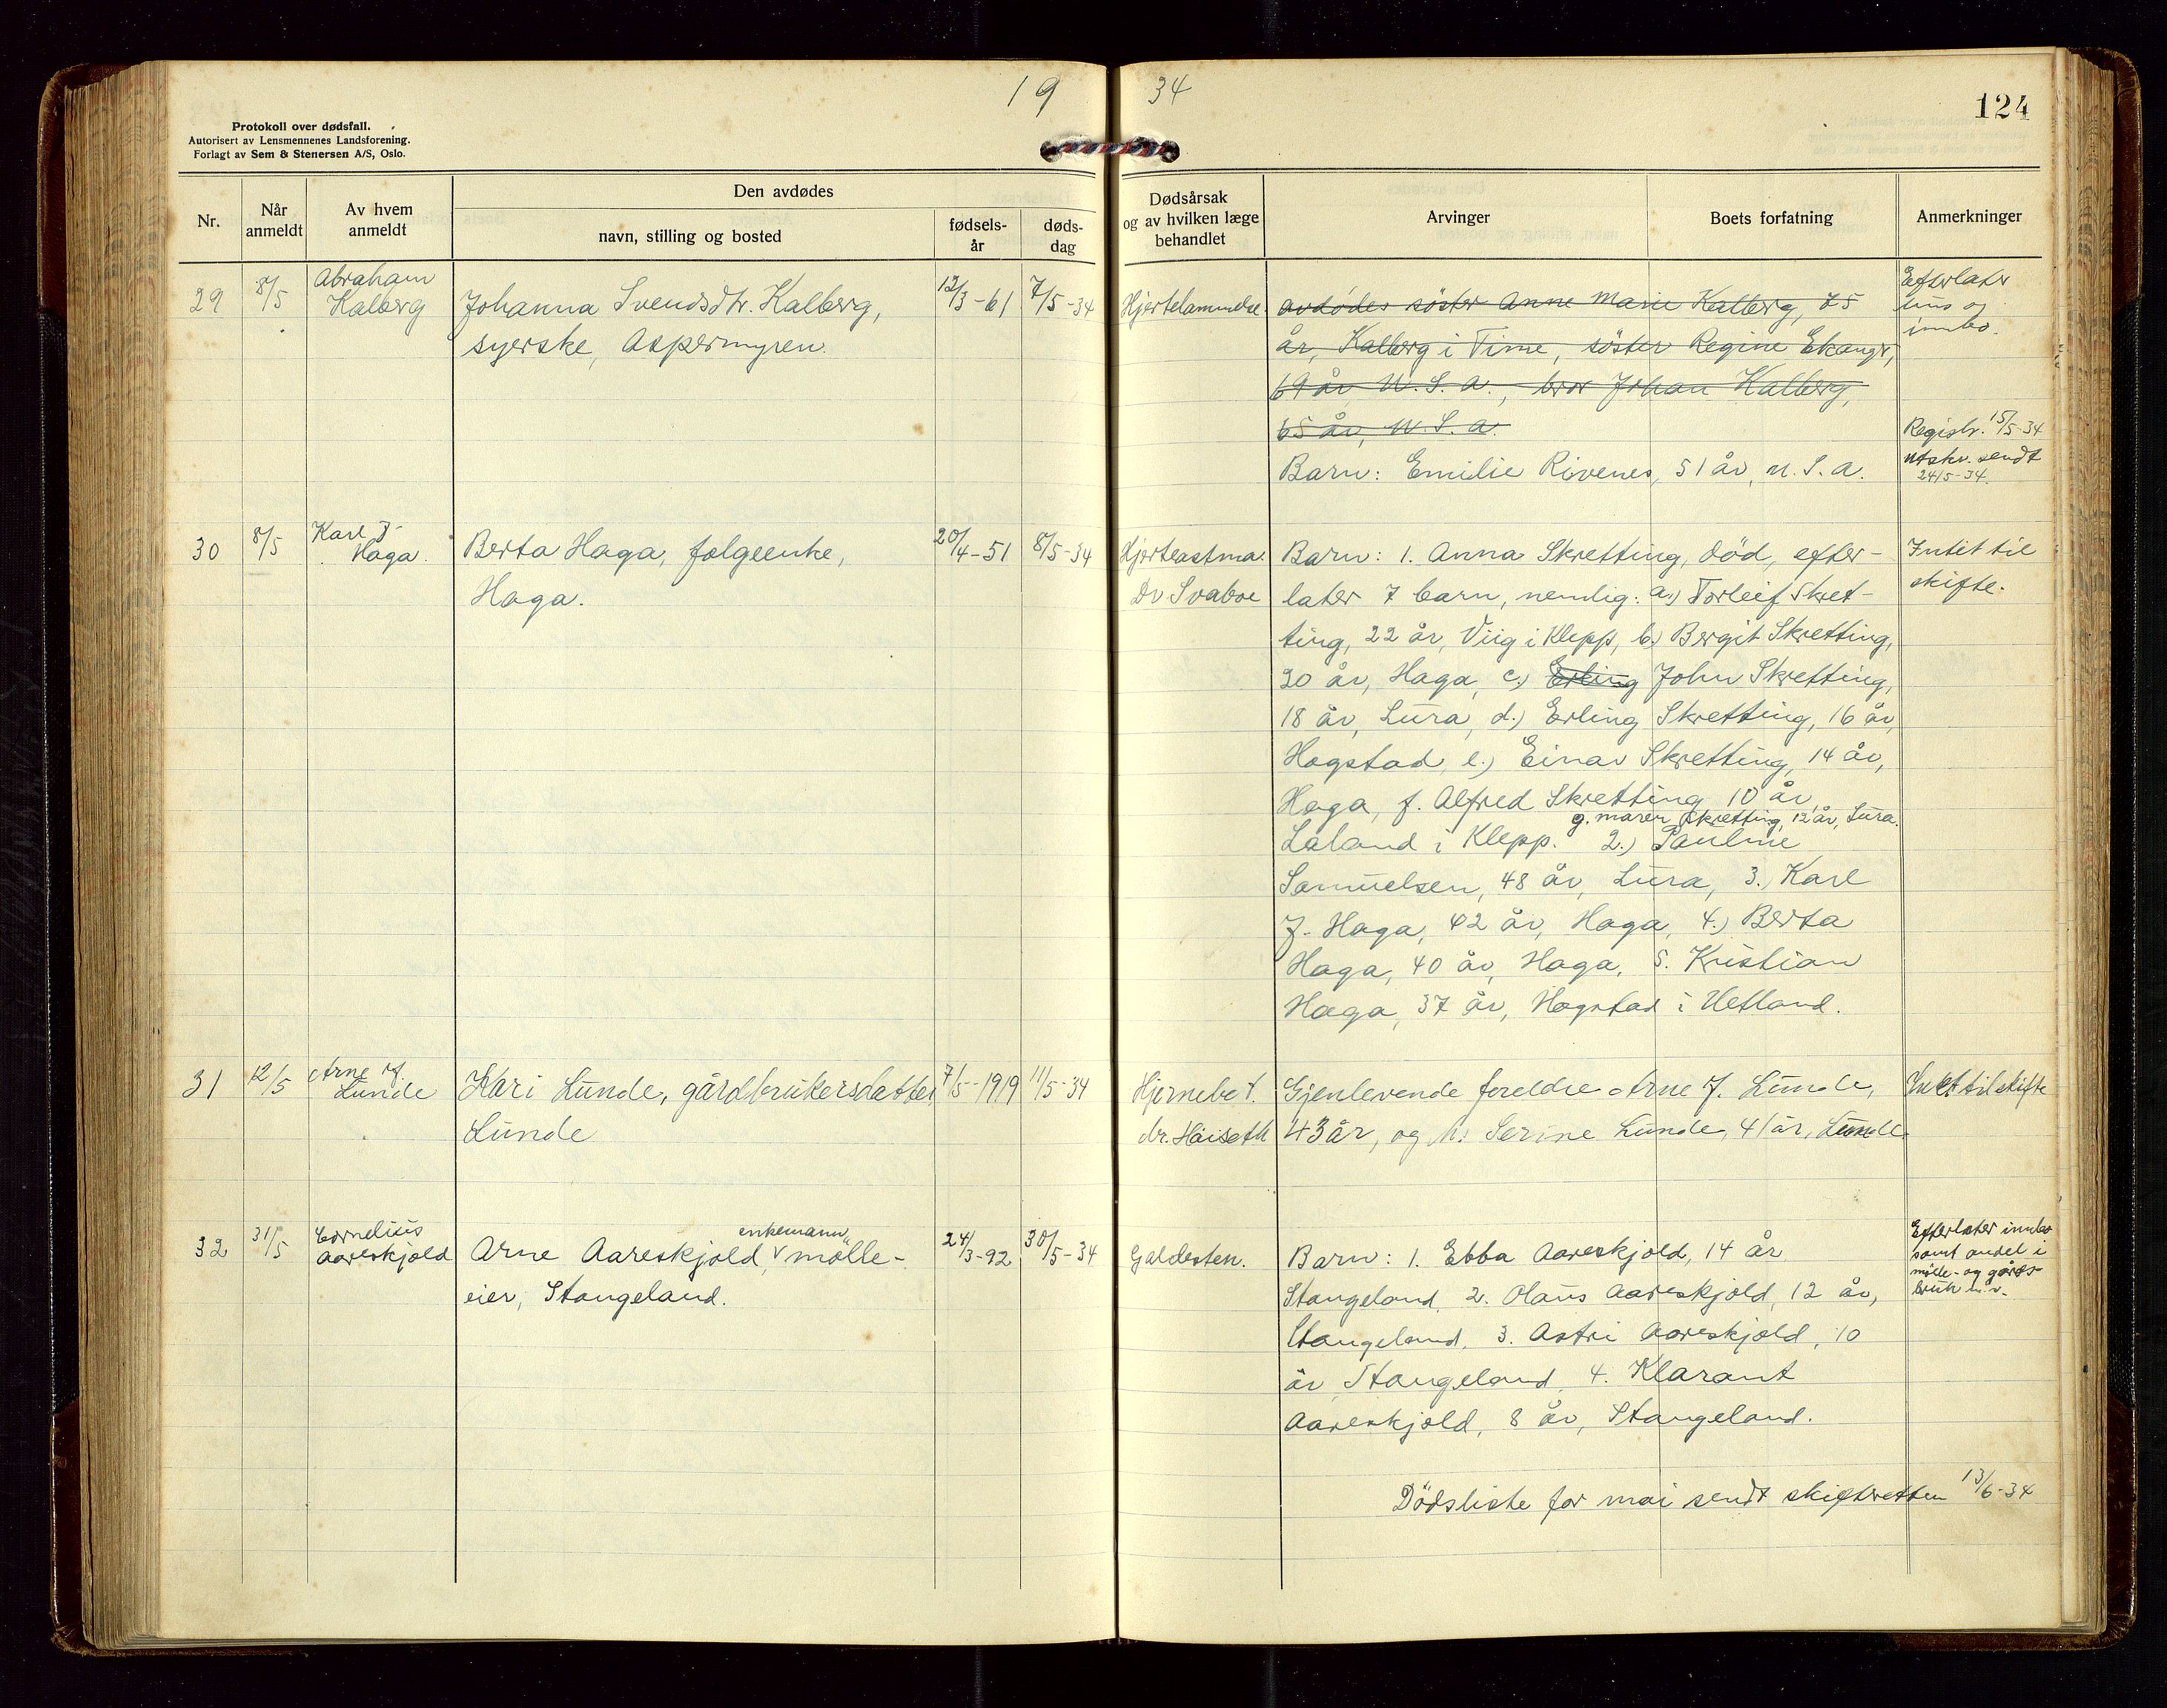 19 34
124
Protokoll over dødsfall.
Autorisert av Lensmennenes Landsforening.
Forlagt av Sem & Stenersen A/S, Oslo.
Nr.
Når anmeldt
Av hvem anmeldt
Den avdødes
navn, stilling og bosted
fødsels-år
døds-dag
Dødsårsak og av hvilken læge behandlet
Arvinger
Boets forfatning
Anmerkninger
29
8/5
Abraham
Kalberg
Johanna Svendsdtr. Kalberg,
syerske, Aspermyren.
12/3-61
7/5-34
Hjertelammelse.
avdødes söster Anne Marie Kalberg, 75
år, Kalberg i Time, söster Regine
69 år U.S.A., bror Johan Kalberg,
65 år, U.S.A.
Barn: Emilie Rivenes, 51 år, U.S.A.
Efterlater
hus og
innbo.
Registr. 15/5-34
utskr. sendt
24/5-34.
30
8/5
Karl J.
Haga.
Berta Haga, følgeenke,
Haga.
20/4-51
8/5-34
Hjerteastma.
Dr Svaboe
Barn: 1. Anna Skretting, död, efter-
later 7 barn, nemlig: a.) Torleif Skret-
ting, 22 år, Viig i Klepp, b.) Bergit Skretting,
20 år, Haga, c.) Erling John Skretting,
18 år, Lura, d.) Erling Skretting, 16 år,
Hogstad, e.) Einar Skretting, 14 år,
Haga, f. Alfred Skretting 10 år,
g. Maren Skretting, 12 år, Lura.
Laland i Klepp. 2.) Pauline
Samuelsen, 48 år, Lura, 3.) Karl
J. Haga, 42 år, Haga, 4.) Berta
Haga, 40 år, Haga, 5. Kristian
Haga, 37 år, Hogstad i Hetland.
Intet til
skifte.
31
12/5
Arne J.
Lunde
Kari Lunde, gårdbrukersdatter,
Lunde
7/5-1919
11/5-34
Hjernebet.
dr. Höiseth
Gjenlevende foreldre Arne J. Lunde,
43 år, og h. Serine Lunde, 41 år, Lunde
Intet til skifte
32
31/5
Cornelius
Aareskjold
enkemann,
Arne Aareskjold, mölle-
eier, Stangeland.
24/3-92
30/5-34
Galdesten.
Barn: 1. Ebba Aareskjold, 14 år
Stangeland, 2. Olaus Aareskjold, 12 år,
Stangeland, 3. Astri Aareskjold, 10
år Stangeland, 4. Klarant
Aareskjold, 8 år, Stangeland.
Efterlater innbo
samt andel i
mölle- og gårds-
bruk m.v.
Dödsliste for mai sendt skifteretten 13/6-34